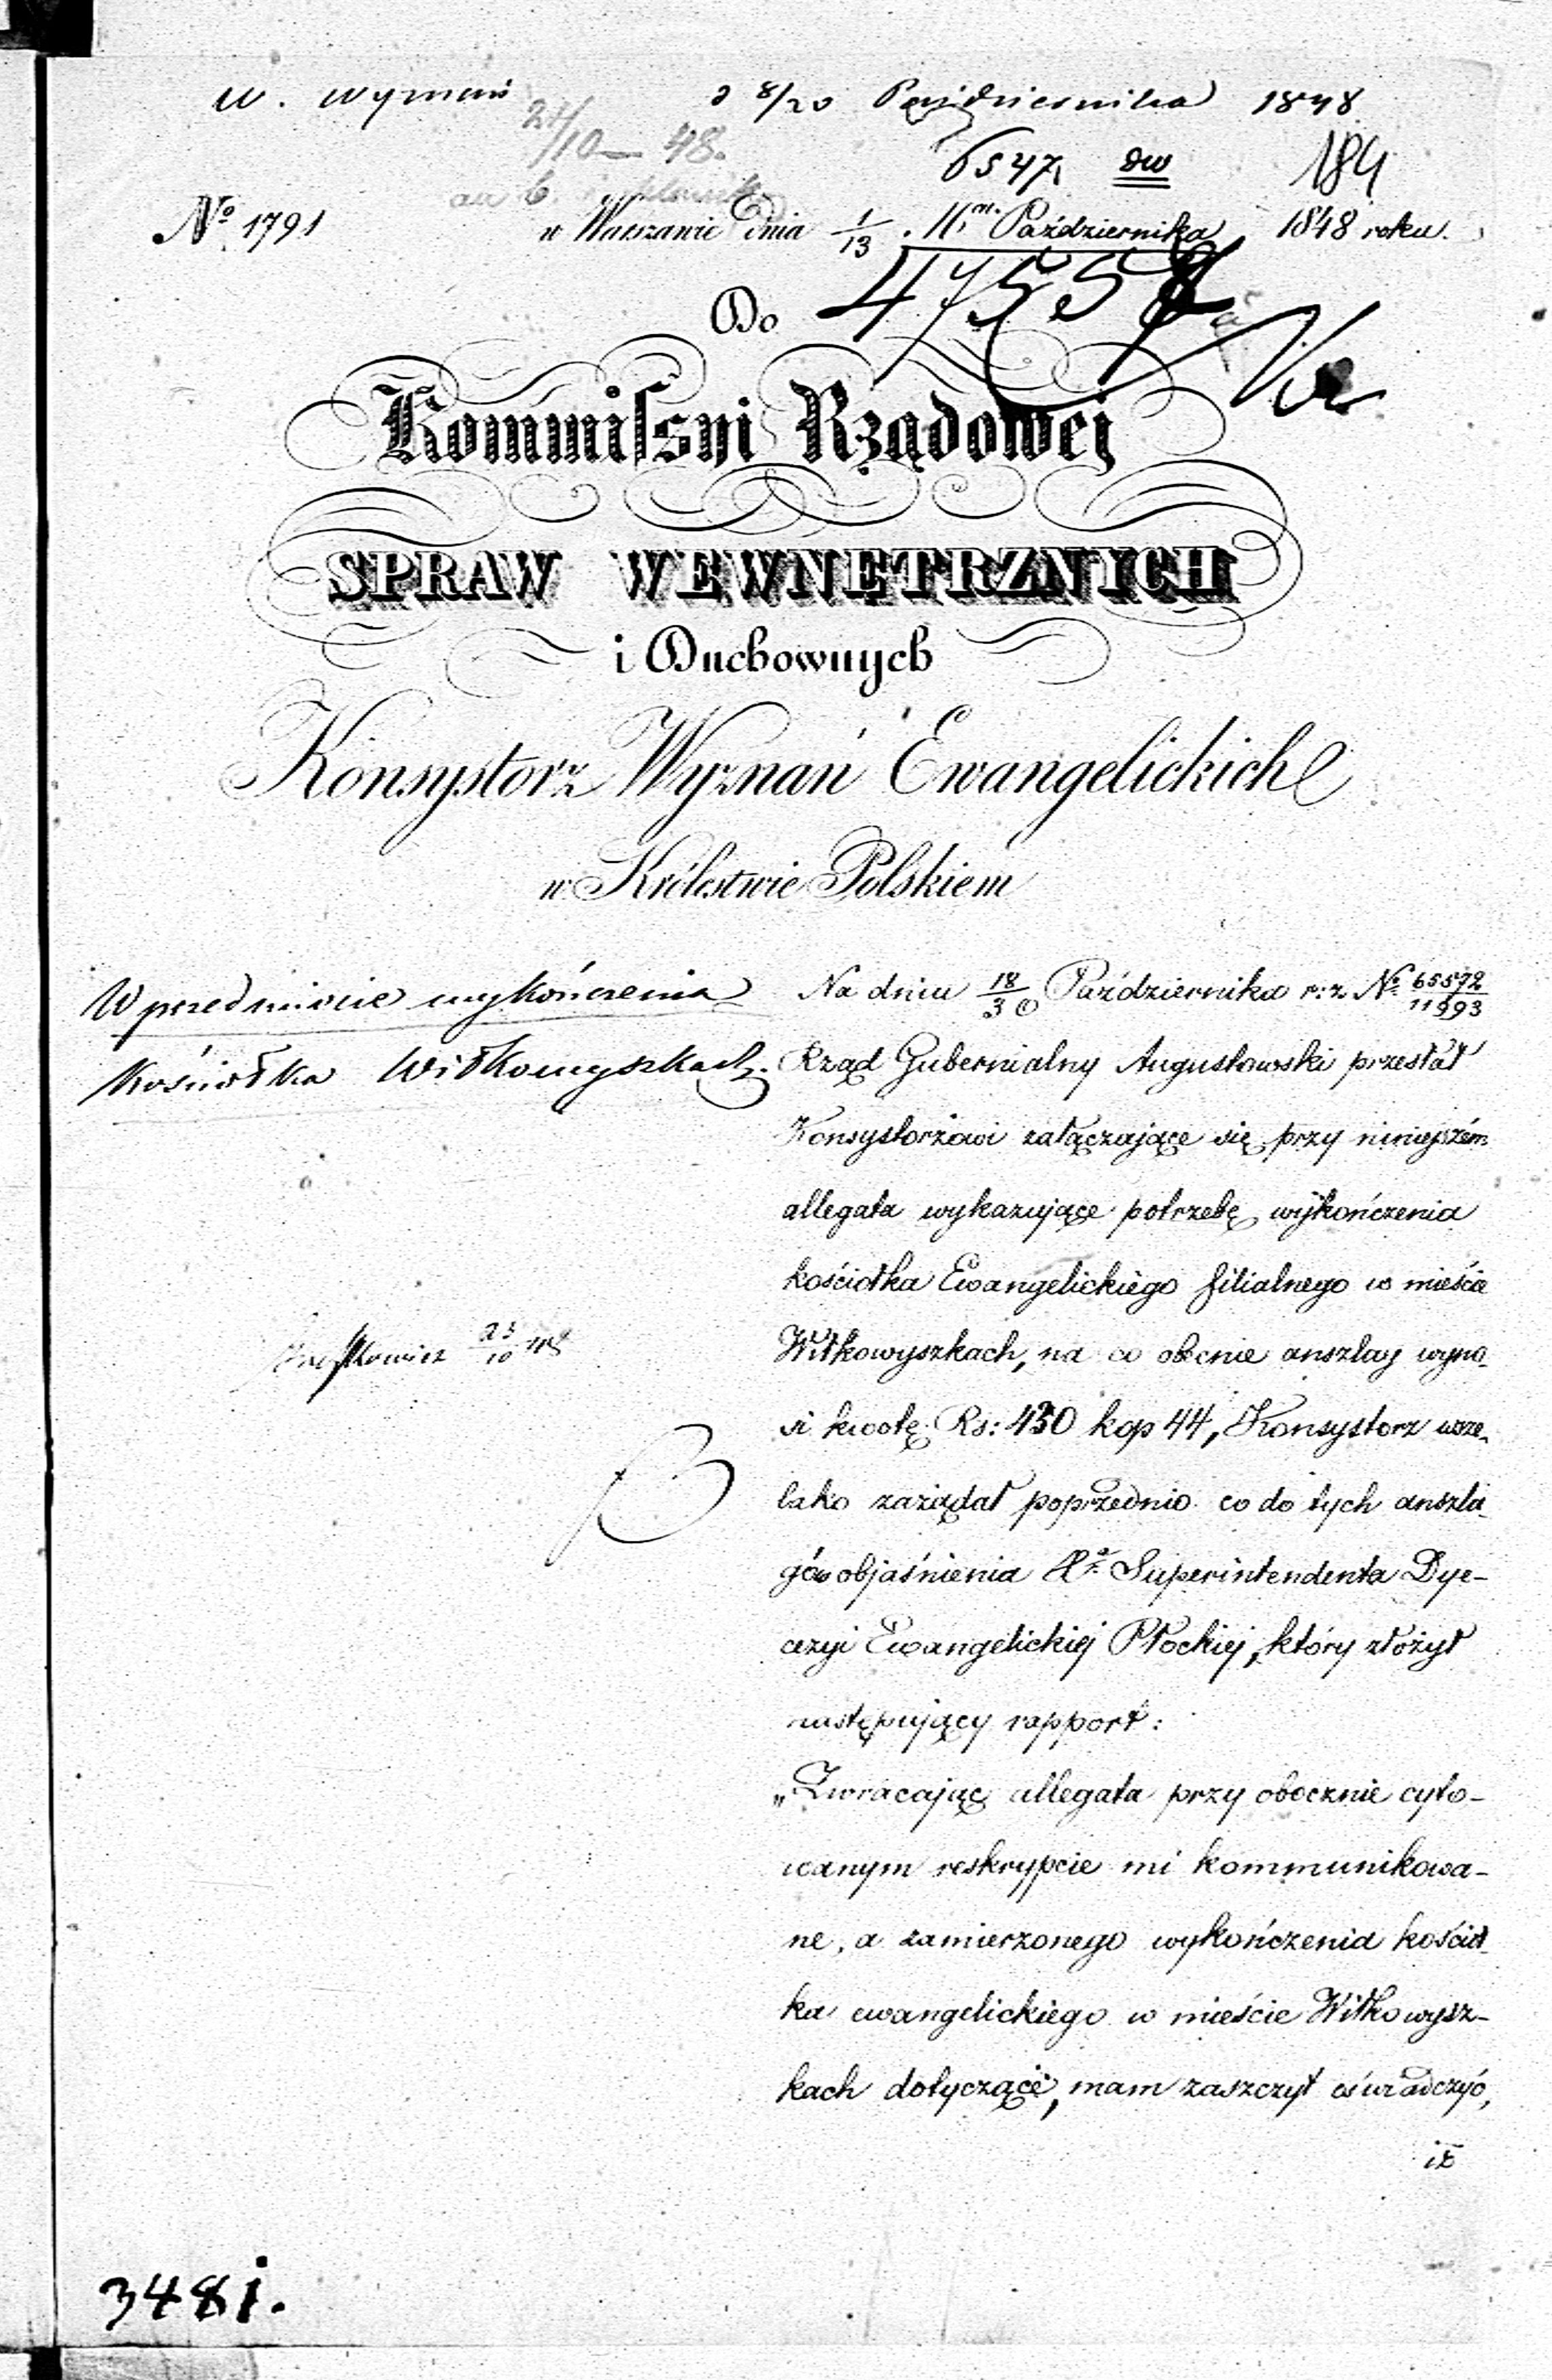 W. Wyznań d 8/20 Października 1848
27/10 48.
6547 dw 184
No 1791 w Warszawie dnia 1/13 Października 1848 roku.
Do 47558
Kommissyi Rządowej
SPRAW WEWNĘTRZNYCH
i Duchownych
Konsystorz Wyznań Ewangelickich
w Królestwie Polskiem
W przedmiocie wykończenia
Kościołka Wiłkowyszkach.
23/10 48
Na dniu 18/30 Października r: z. No 65572/11993
Rząd Gubernialny Augustowski przesłał
Konsystorzowi załączające się przy niniejszém
allegata wykazujące potrzebę wykończenia
kościołka Ewangelickiego filialnego w mieście
Wiłkowyszkach, na co obecnie anszlag wyno-
si kwotę Rs: 430 kop 44, Konsystorz wsze-
lako zażądał poprzednio co do tych anszla-
gów objaśnienia Superintendenta Dye-
cezyi Ewangelickiej Płockiej, który złożył
następujący rapport:
„Zwracając allegata przy obocznie cyto-
wanym reskrypcie mi kommunikowa-
ne, a zamierzonego wykończenia kościoł-
ka ewangelickiego w mieście Wiłkowysz-
kach dotyczące, mam zaszczyt oświadczyć,
iż
3481.